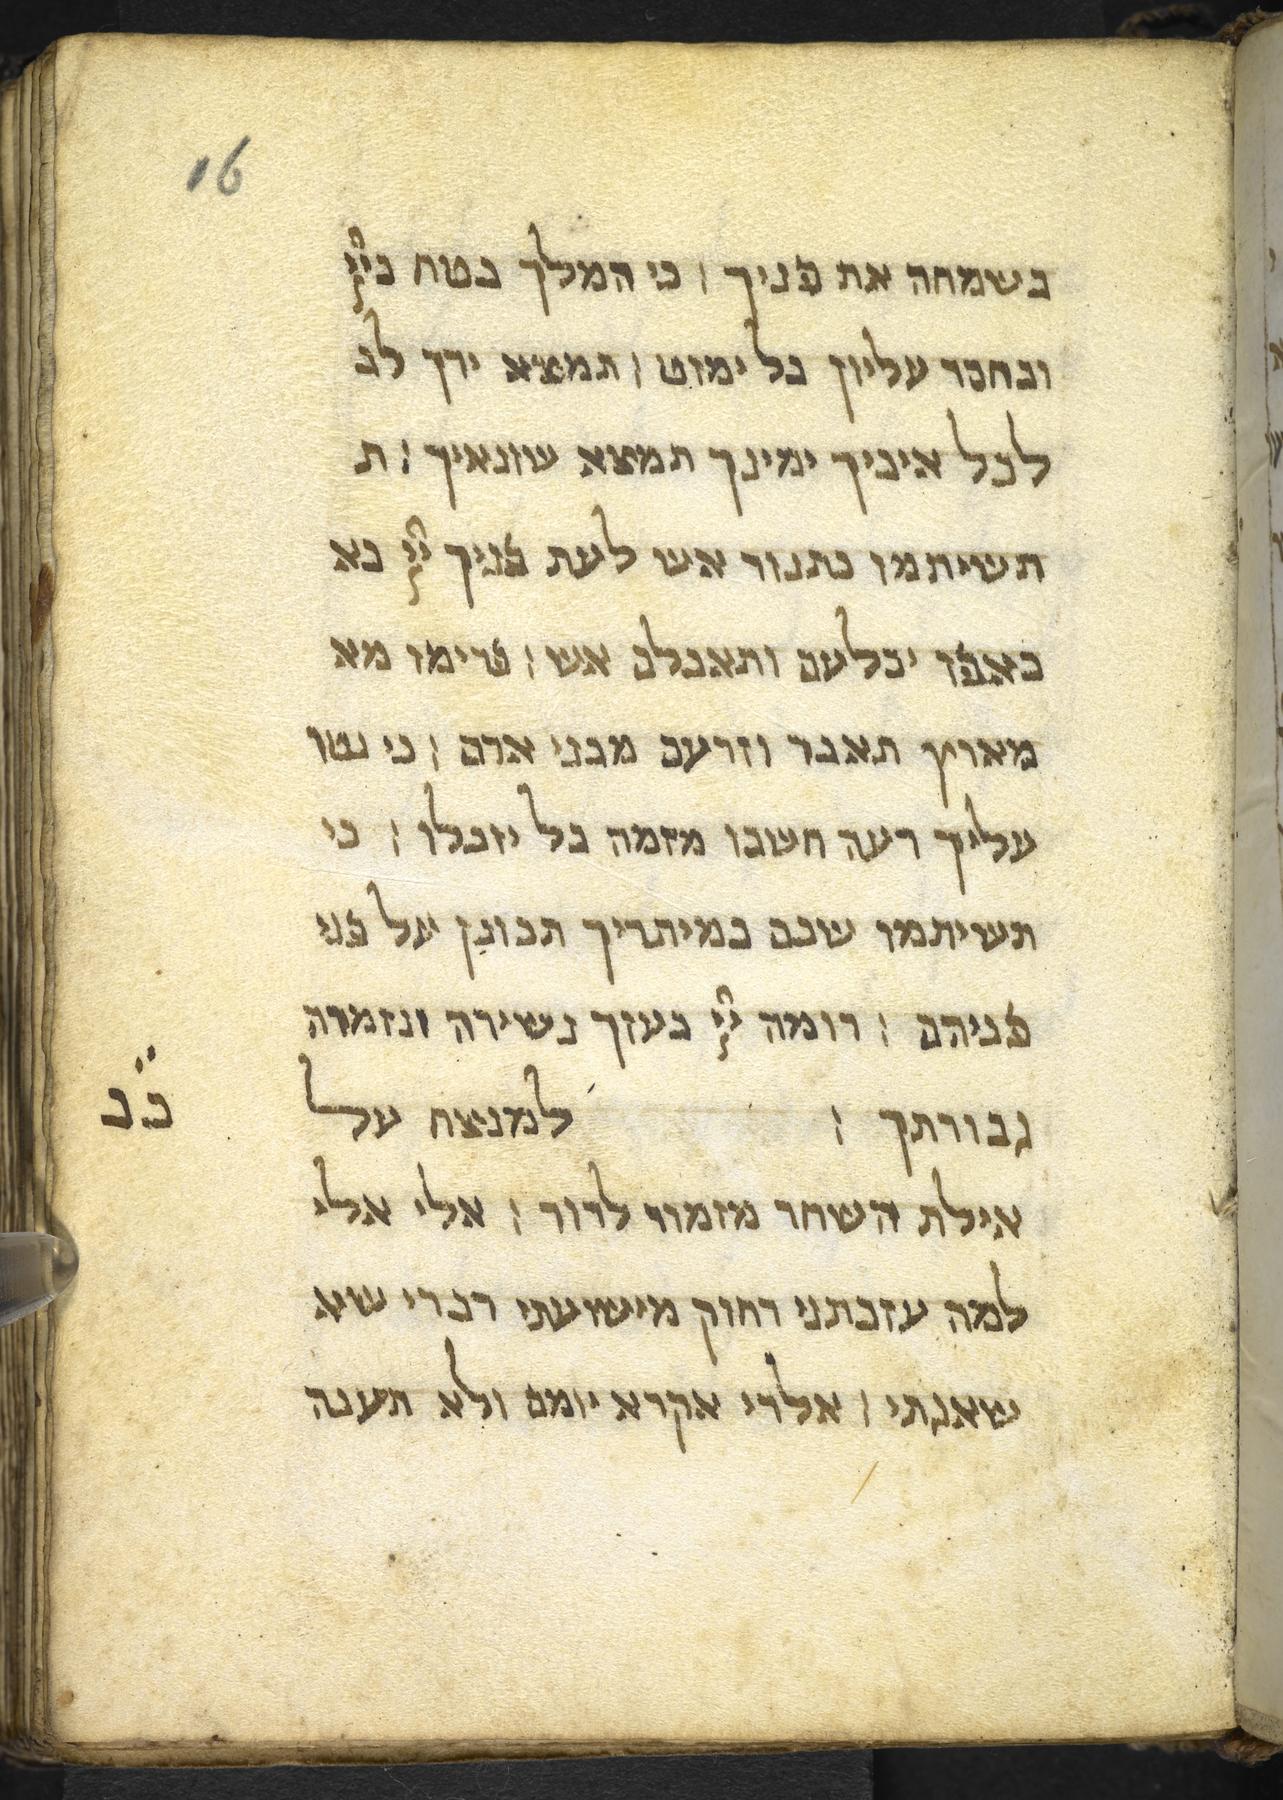 16
בשמחה את פניך : כי המלך בטח ביי
ובחסד עליון בל ימוט : תמצא ידך לב
לכל איביך ימינך תמצא שונאיך : ת
תשיתמו כתנור אש לעת פניך יי בא
באפו יבלעם ותאכלם אש : פרימו מא
מארץ תאבד וזרעם מבני אדם : כי נטו
עליך רעה חשבו מזמה בל יוכלו : כי
תשיתמו שכם במיתריך תכונן על פני
פניהם : רומה יי בעזך נשירה ונזמרה
גבורתך : למנצח על
כ׳ב
אילת השחר מזמור לדוד : אלי אלי
למה עזבתני רחוק מישועתי דברי שא
שאגתי : אלהי אקרא יומם ולא תענה